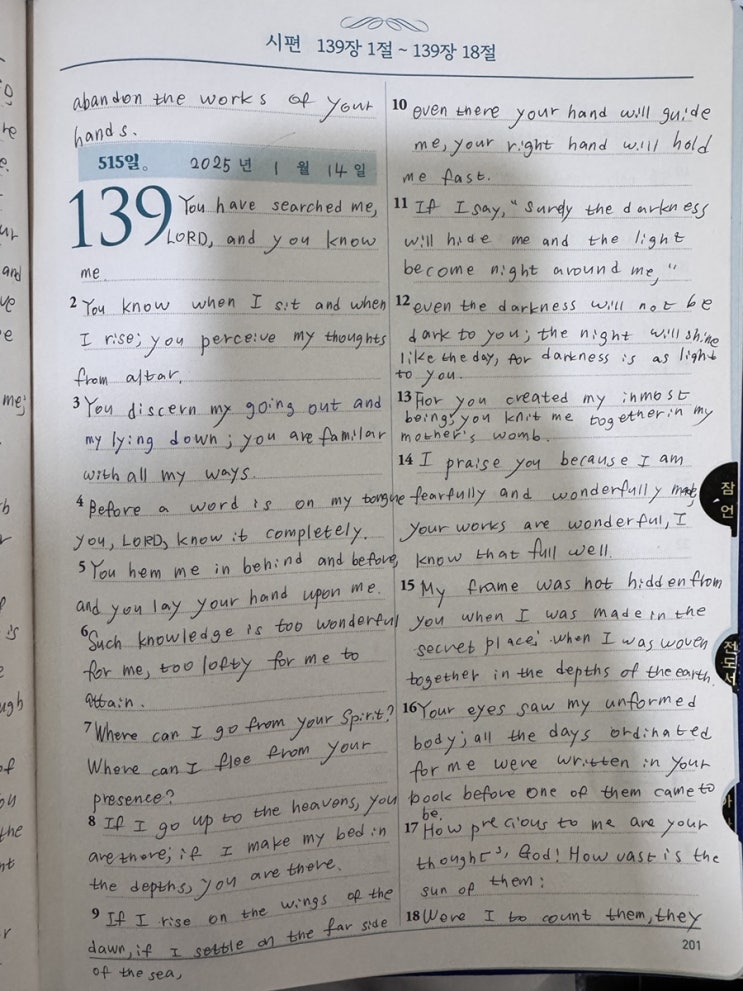 시편 139장 1절 ~ 139장 18절
abandon the works of your
hands.
515일。 2025 년 1 월 14 일
139 You have searched me,
LORD, and you know
me.
2 You know when I sit and when
I rise; you perceive my thoughts
from altar.
3 You discern my going out and
my lying down; you are familar
with all my ways.
4 Before a word is on my tongue
you, LORD, know it completely.
5 You hem me in behind and before,
and you lay your hand upon me.
6 Such knowledge is too wonderful
for me, too lofty for me to
attain.
7 Where can I go from your Spirit?
Where can I flee from your
presence?
8 If I go up to the heavens, you
are there; if I make my bed in
the depths, you are there.
9 If I rise on the wings of the
dawn, if I settle on the far side
of the sea,
10 even there your hand will guide
me, your right hand will hold
me fast.
11 If I say, "Surely the darkness
will hide me and the light
become night around me,"
12 even the darkness will not be
dark to you; the night will shine
like the day, for darkness is as light
to you.
13 For you created my inmost
being; you knit me together in my
mother's womb.
14 I praise you because I am
fearfully and wonderfully made;
your works are wonderful, I
know that full well.
15 My frame was not hidden from
you when I was made in the
secret place; when I was woven
together in the depths of the earth.
16 Your eyes saw my unformed
body; all the days ordinated
for me were written in your
book before one of them came to
be.
17 How precious to me are your
thoughts, God! How vast is the
sun of them:
18 Were I to count them, they
201
잠언
전도서